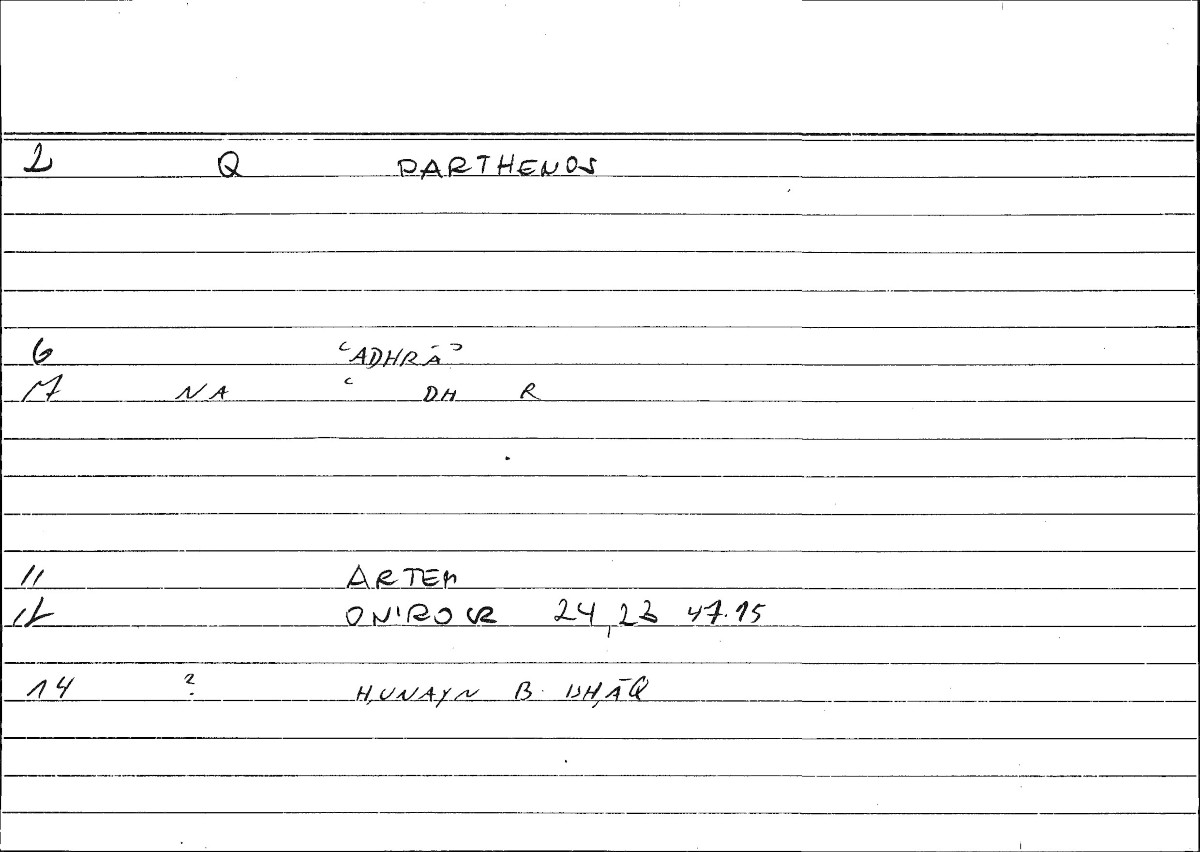 2 Q PARTHENOS
6 ʿADHRĀʾ
7 NA ʿ DH R
11 ARTEM
12 ONIROCR 24,23 47.15
14 ? ḤUNAYN B. ISḤĀQ